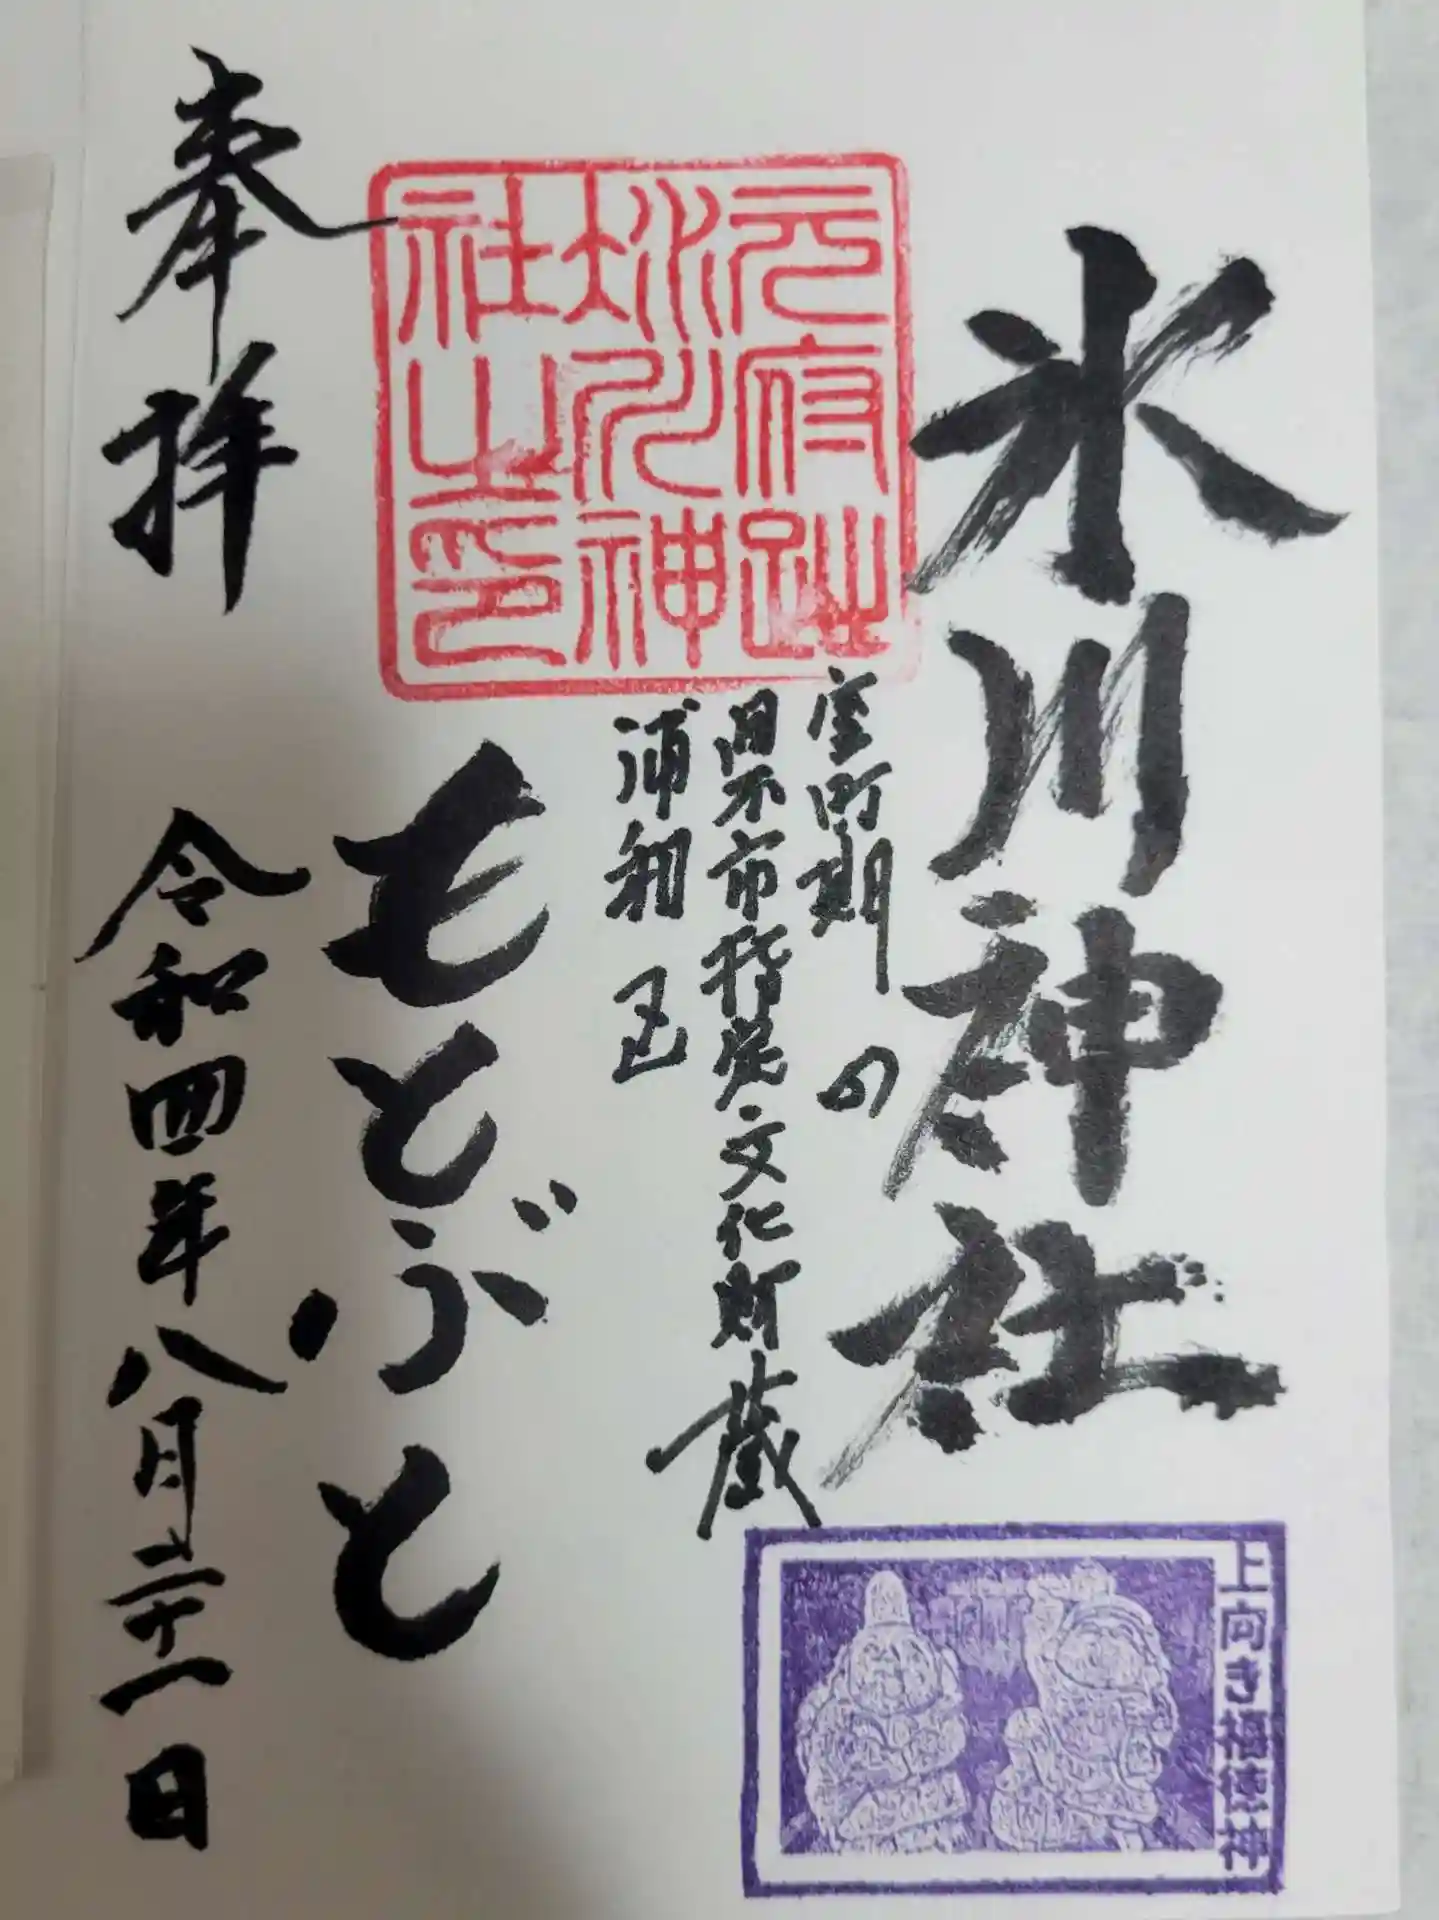 氷川神社
室町期の
県市指定文化財蔵
浦和区
元府趾
氷川神
社之印
もとぶと
奉拝
令和四年八月二十一日
上向き福徳神